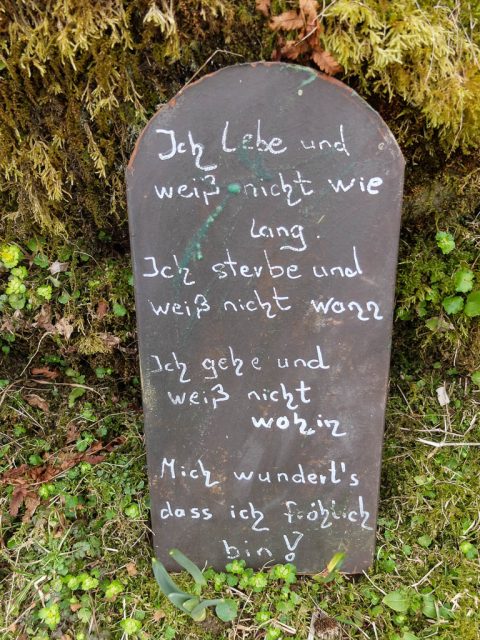 Ich Lebe und
weiß nicht wie
lang.
Ich sterbe und
weiß nicht wann
Ich gehe und
weiß nicht
wohin
Mich wundert's
dass ich fröhlich
bin!